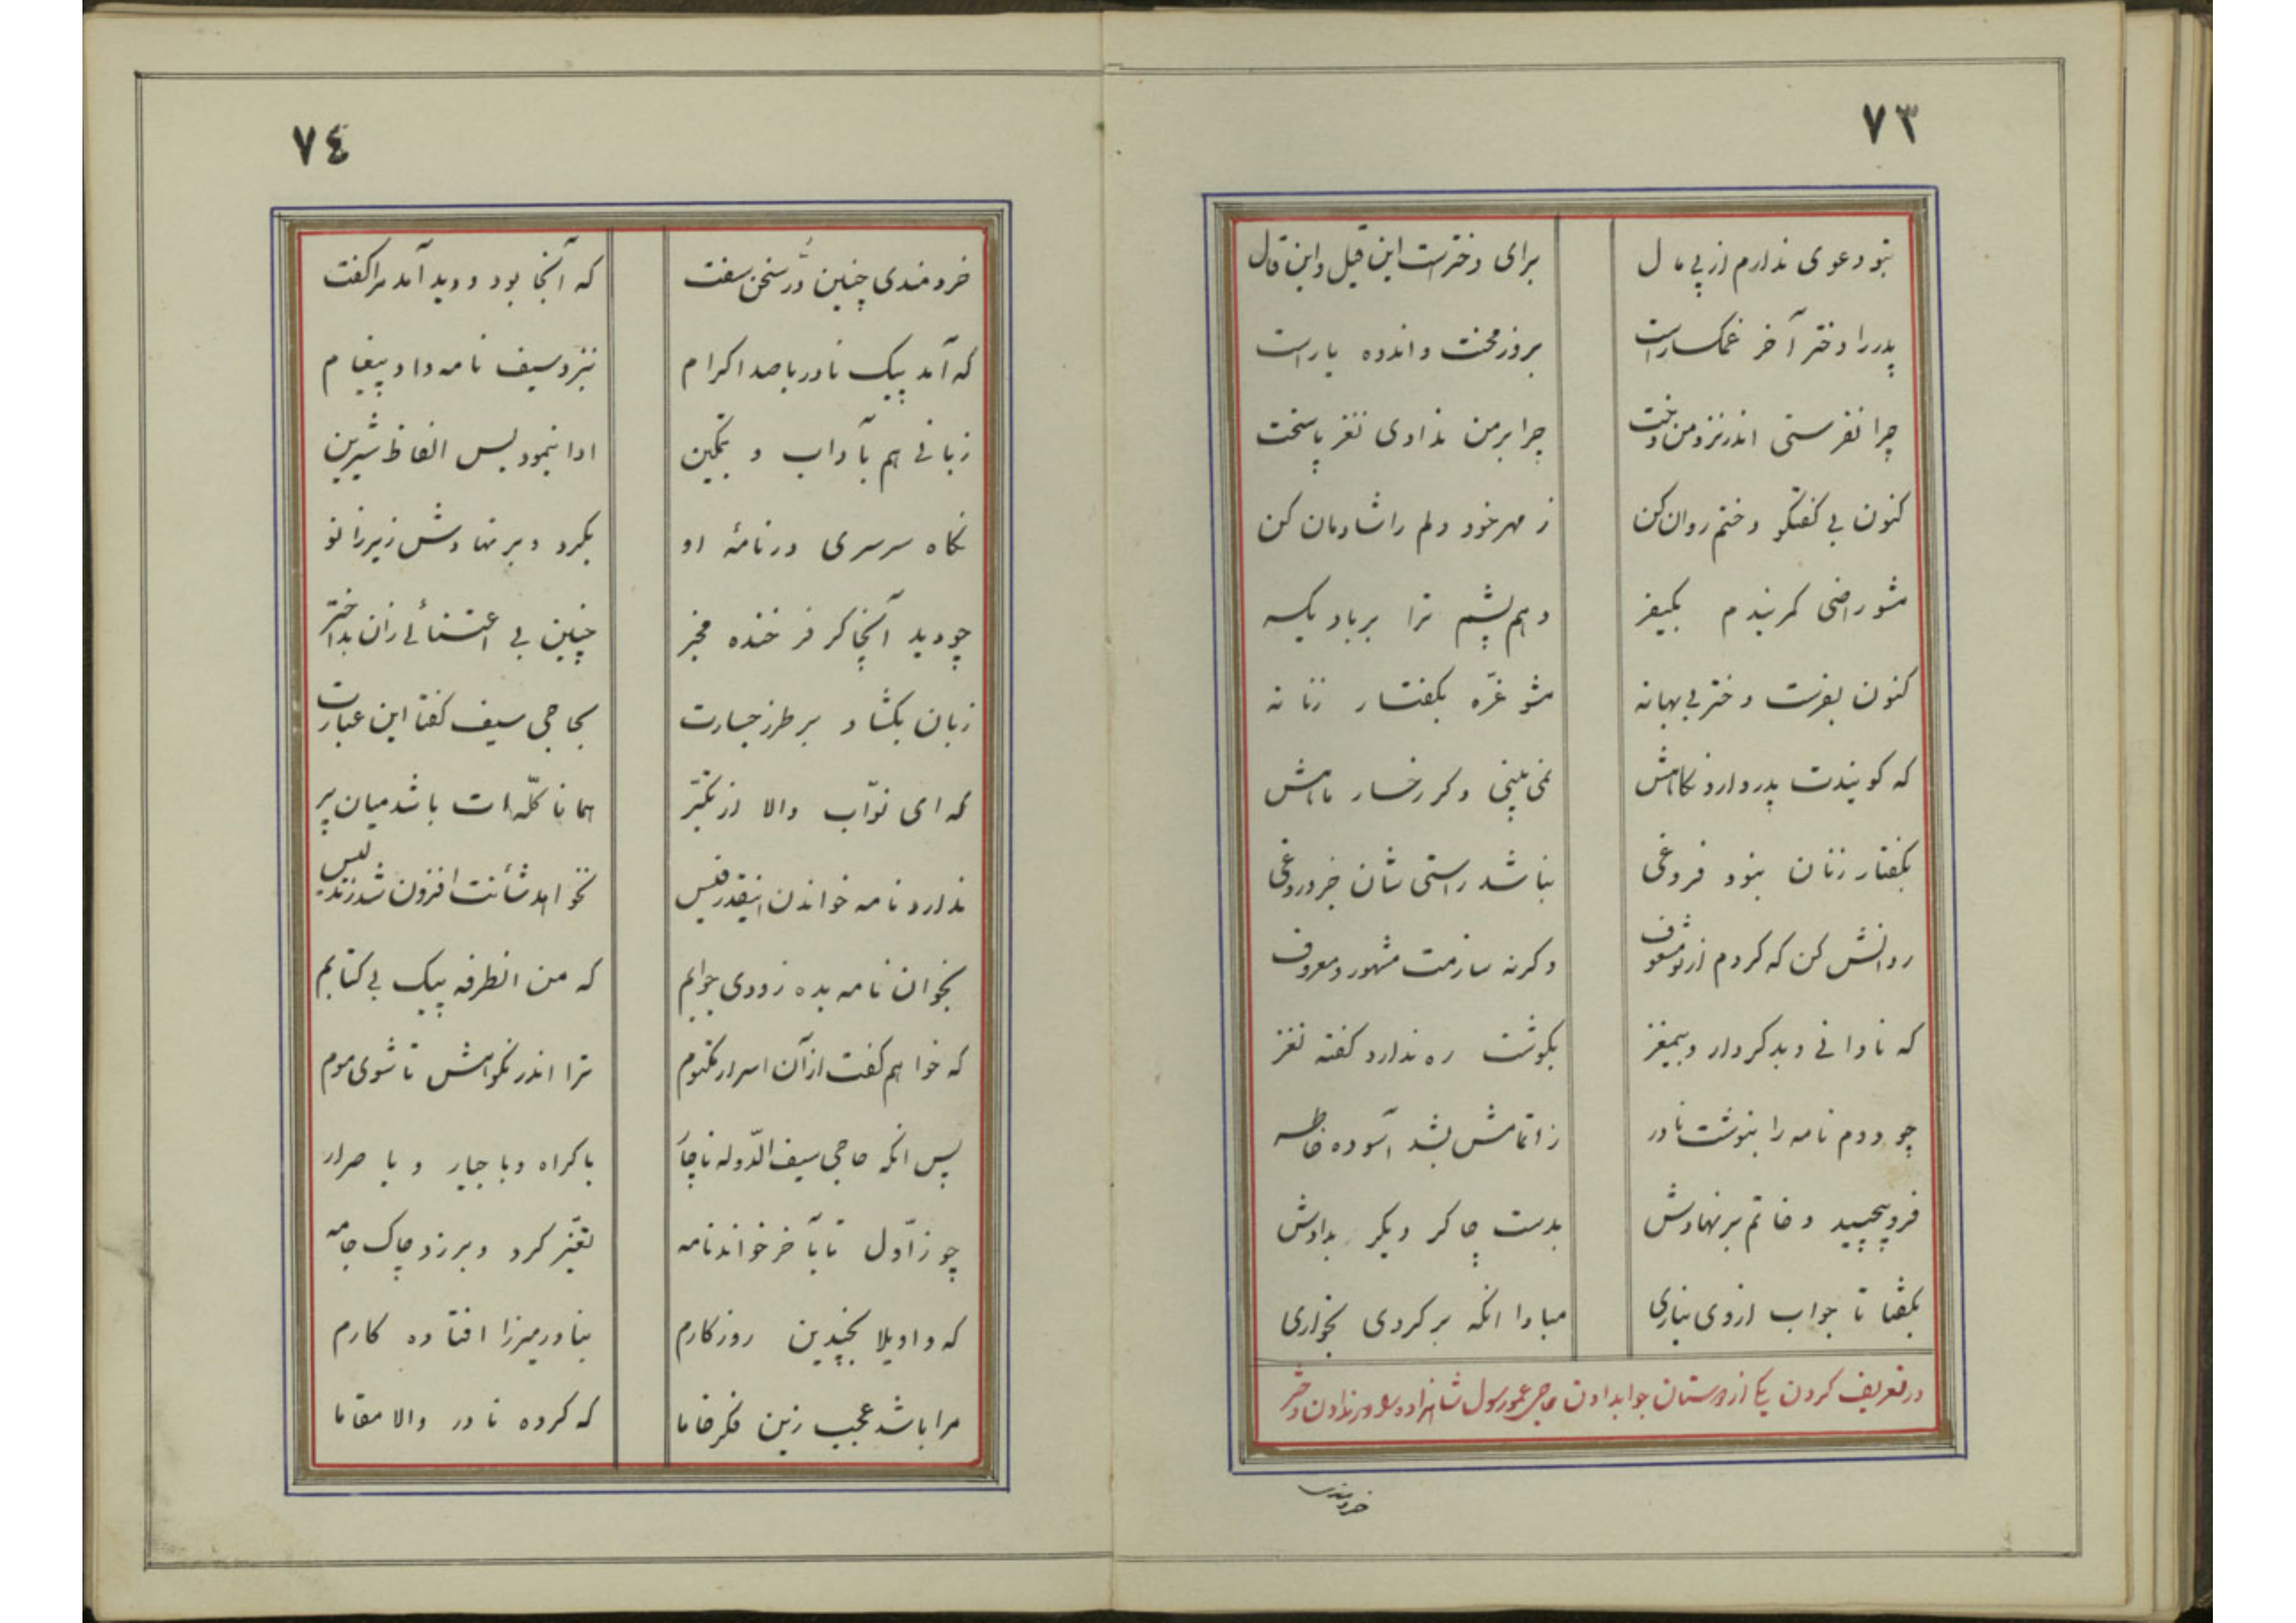 ۷۳
بتو دعوی ندارم از پی مال برای دختر است این قیل و این قال
پدر را دختر آخر غمگسار است بروز محنت و اندوه یار است
چرا نفرستی اندر نزد من دخت چرا بر من ندادی نغز پاسخت
کنون بی گفتگو دختم روان کن ز مهر خود دلم را شادمان کن
مشو راضی کمر بندم بکیفر دهم پشم ترا بر باد یکسر
کنون بفرست دختر بی بهانه مشو غرّه بگفتار زنانه
که گویندت پدر دارد نگاهش نمی بینی دگر رخسار ماهش
بگفتار زنان نبود فروغی نباشد راستی شان جز دروغی
روانش کن که کردم از تو مشعوف وگرنه سازمت مشهور و معروف
که نادانی و بدکردار و بیمغز بگوشت ره ندارد گفته نغز
چو دوم نامه را بنوشت نادر ز اتمامش بشد آسوده خاطر
فروپیچید و خاتم بر نهادش بدست چاکر دیگر بدادش
بگفتا تا جواب از وی نیاری مبادا آنکه برگردی بخواری
در تعریف کردن یکی از دوستان جواب دادن حاجی عمو رسول شاهزاده و ندادن دختر
خردمندی
۷٤
خردمندی چنین دُرّ سخن سفت که آنجا بود و دید آمد مرا گفت
که آمد پیک نادر با صد اکرام بنزد سیف نامه داد و پیغام
زبانی هم بآداب و تمکین ادا بنمود بس الفاظ شیرین
نگاه سرسری در نامهٔ او بکرد و بر نهادش زیر زانو
چو دید آنچاکر فرخنده مخبر چنین بی اعتنائی زان بداختر
زبان بگشاد بر طرز جسارت بحاجی سیف گفتا این عبارت
که ای نوّاب والا از تکبّر همانا کلّه‌ات باشد میان پر
ندارد نامه خواندن اینقدر فیس نخواهد شأنت افزون شد ز تدلیس
بخوان نامه بده زودی جوابم که من انطرفه پیک بی کتابم
که خواهم گفت از آن اسرار مکتوم ترا اندر نکوهش تا شوی موم
پس آنکه حاجی سیف الدّوله ناچار باکراه و باجبار و باصرار
چو ز اوّل تا بآخر خواند نامه تغیّر کرد و بر زد چاک جامه
که واویلا بچندین روزگارم بنادر میرزا افتاده کارم
مرا باشد عجب زین فکر خاما که کرده نادر والا مقاما